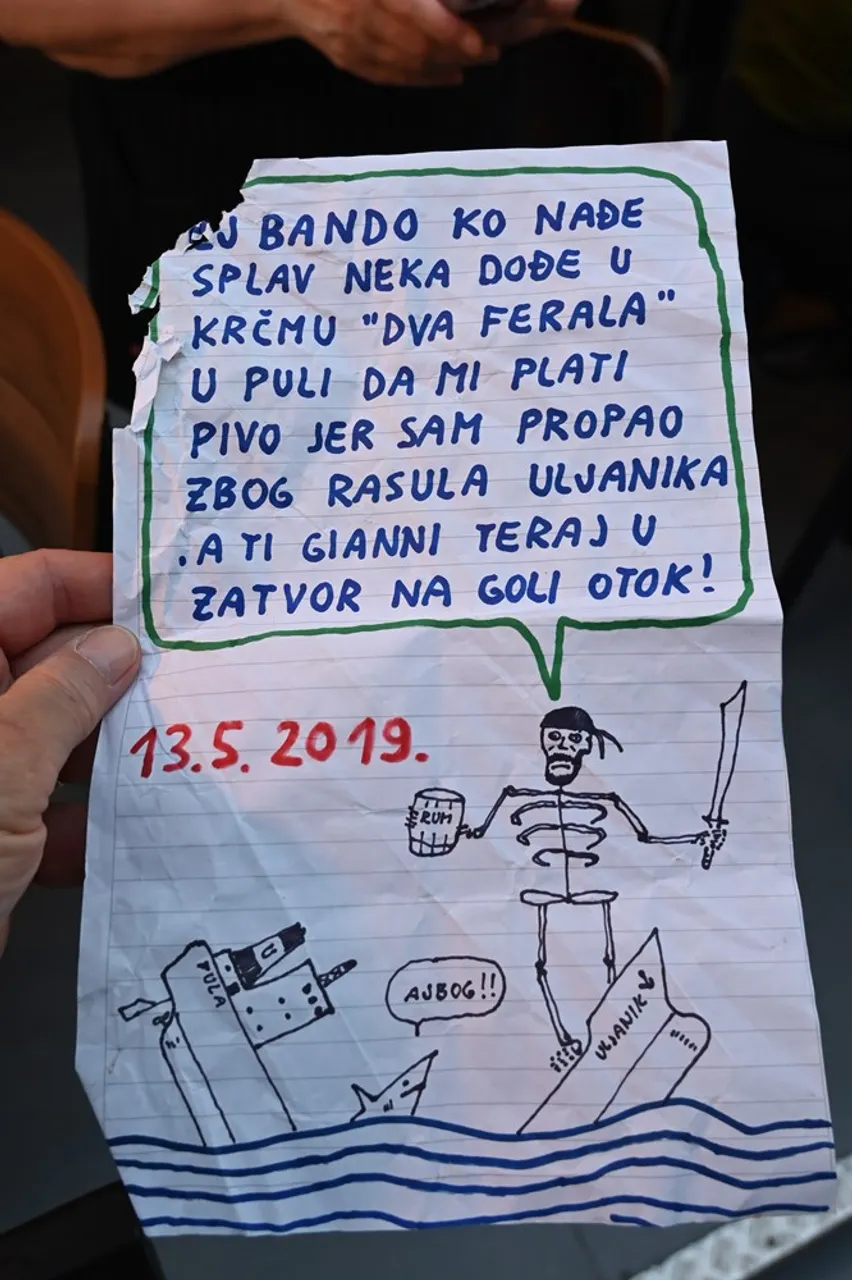 EJ BANDO KO NAĐE
SPLAV NEKA DOĐE U
KRČMU "DVA FERALA"
U PULI DA MI PLATI
PIVO JER SAM PROPAO
ZBOG RASULA ULJANIKA
.A TI GIANNI TERAJ U
ZATVOR NA GOLI OTOK!
13.5.2019.
RUM
PULA
U
AJBOG!!
ULJANIK